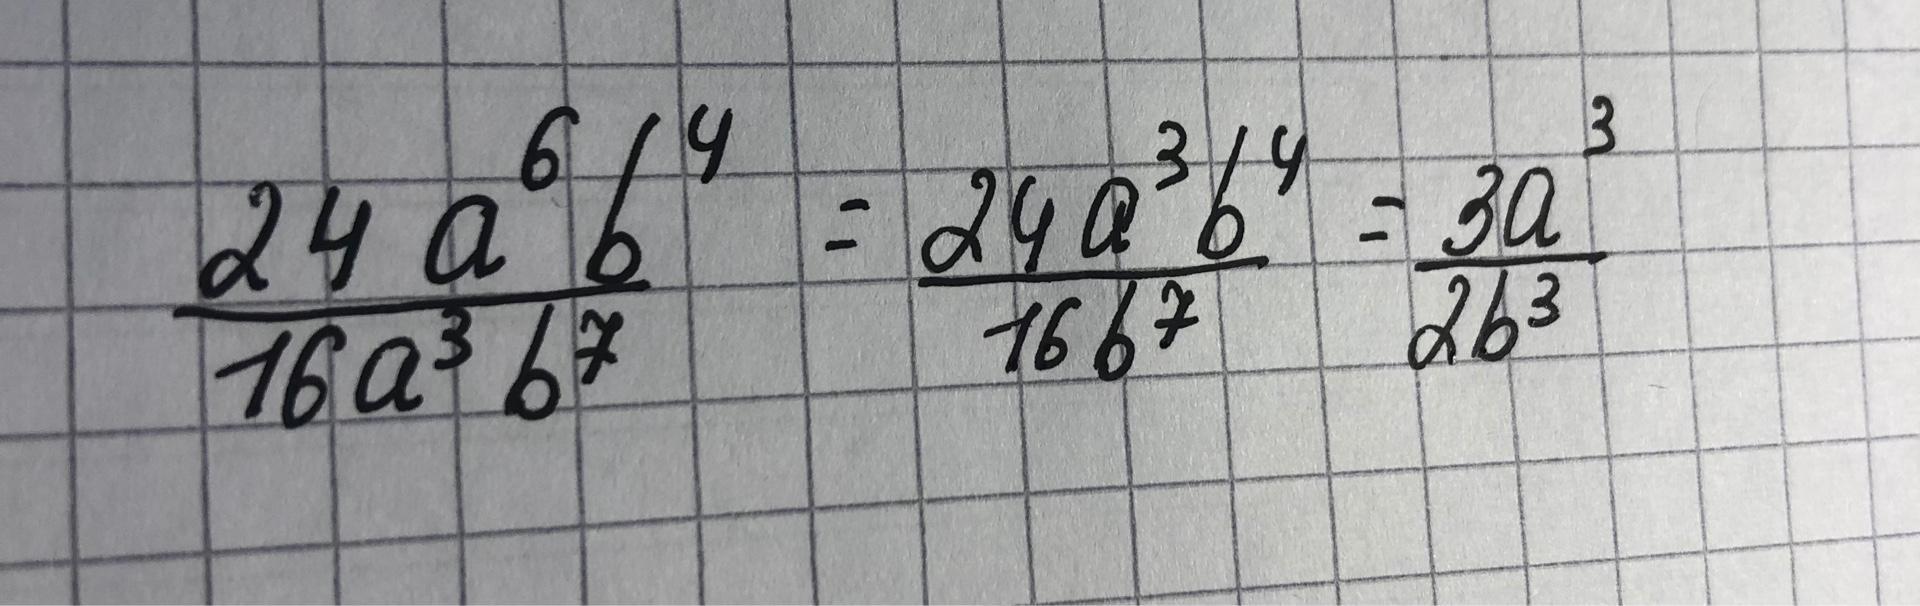 24a⁶b⁴/16a³b⁷ = 24a³b⁴/16b⁷ = 3a³/2b³